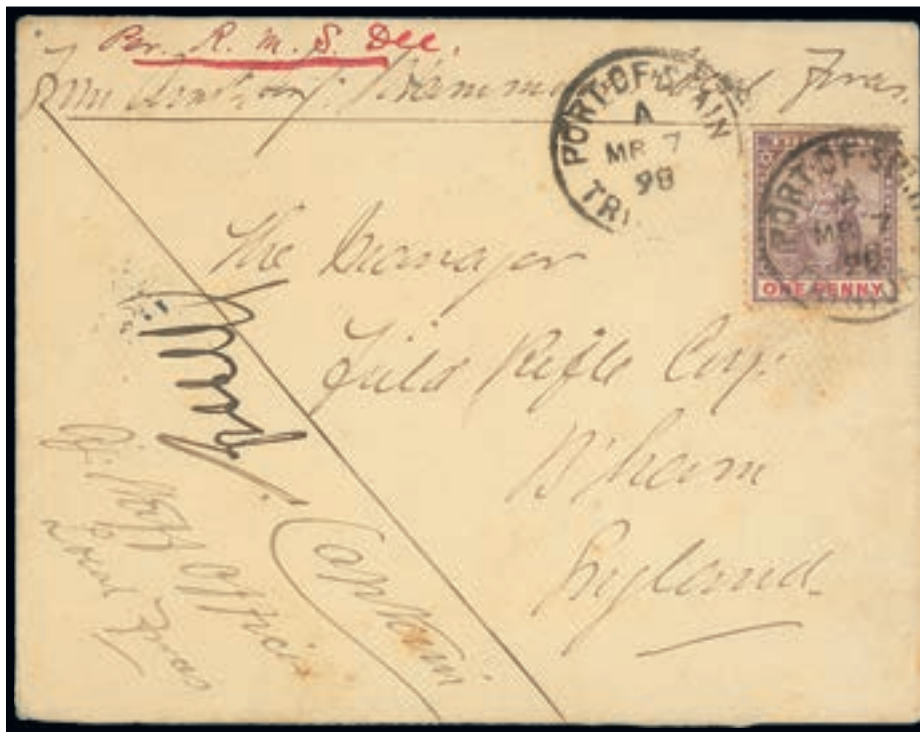 Per. R. M. S. Dee.
PORT-OF-SPAIN
A
MR 7
98
TRI
PORT-OF-SPAIN
A
MR 7
98
ONE PENNY
The Manager
Field Rifle Coy.
B'ham
England
Captain
Officer
Local Forces